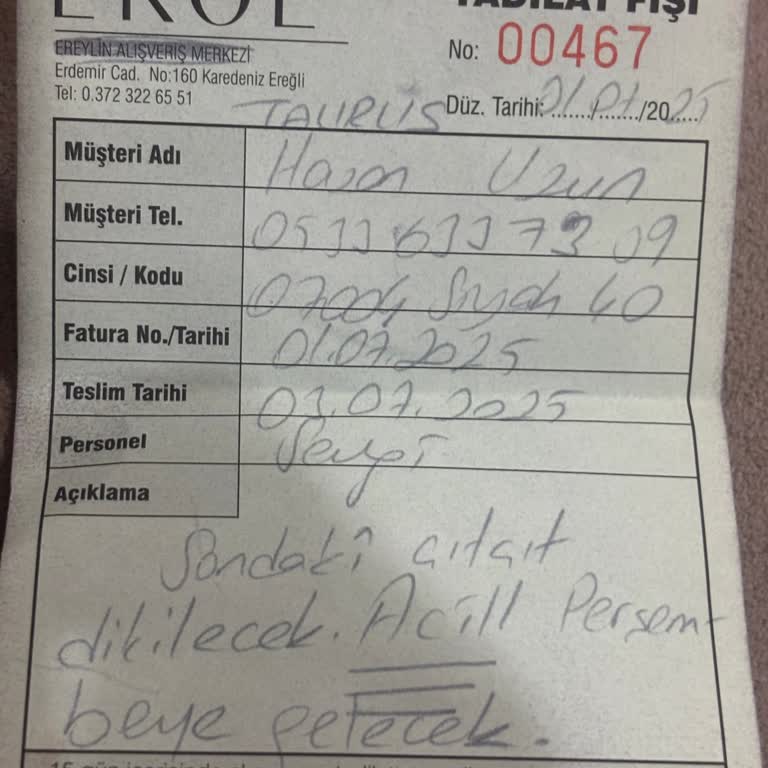 EROL
TADİLAT FİŞİ
EREYLİN ALIŞVERİŞ MERKEZİ
Erdemir Cad. No:160 Karedeniz Ereğli
Tel: 0.372 322 65 51
No: 00467
TAURUS
Düz. Tarihi: 01/07/2025
Müşteri Adı Hasan Uzun
Müşteri Tel. 0533 633 73 09
Cinsi / Kodu 07004 Siyah 40
Fatura No./Tarihi 01.07.2025
Teslim Tarihi 03.07.2025
Personel Sevgi
Açıklama
Sondaki çıtçıt
dikilecek. Acill Perşem-
beye gelecek.